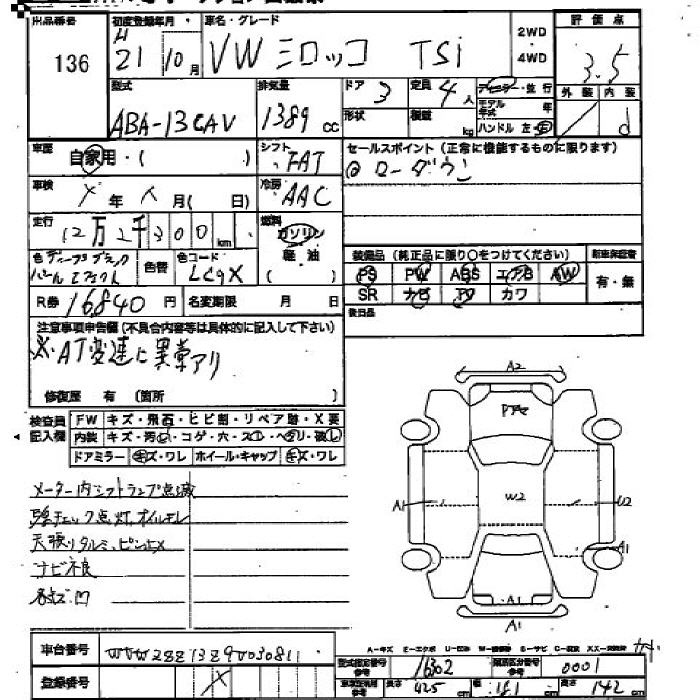 出品番号
136
初度登録年月
H 21 10月
車名・グレード
VW シロッコ TSi
2WD
4WD
評価点
3.5
外装 内装
d
型式
ABA-13CAV
排気量
1389 cc
ドア 3
定員 4人
形状
積載 kg
ディーラー・並行
モデル年式 年
ハンドル 左・右
車歴
自家用・( )
シフト
FAT
セールスポイント(正常に機能するものに限ります)
ローダウン
車検
年 月( 日)
冷房
AAC
走行
12万2千300km
燃料
ガソリン
軽油
( )
色 ディープブラックパールエフェクト
色替
色コード
LC9X
装備品(純正品に限り〇をつけてください)
新車保証書
PS PW ABS エアB AW
有・無
SR ナビ TV カワ
R券 16840円
名変期限 月 日
後日品
注意事項申告欄(不具合内容等は具体的に記入して下さい)
※AT変速に異常アリ
修復歴 有(箇所 )
検査員記入欄
FW キズ・飛石・ヒビ割・リペア跡・X要
内装 キズ・汚レ・コゲ・穴・スレ・ヘタリ・破レ
ドアミラー キズ・ワレ ホイール・キャップ キズ・ワレ
メーター内シフトランプ点滅
チェック点灯、オイルモレ
天張りタルミ、ピン止メ
ナビ不良
各キズ凹
A2
W2
A1
U2
A1
A1
A1
車台番号
WVWZZZ13Z9V030811
登録番号
A-キズ E-エクボ U-凹 W-補修跡 S-サビ C-腐食 XX-交換済
型式指定番号 参考
16302
類別区分番号 参考
0001
長さ 425 cm
幅 181 cm
高さ 142 cm